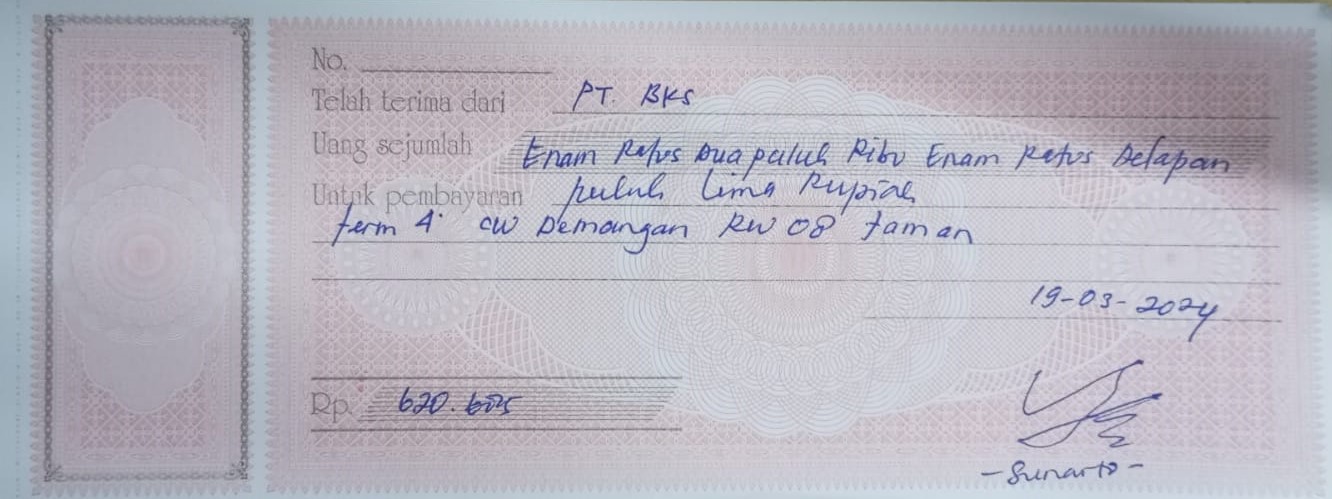 No.
Telah terima dari PT. BKS
Uang sejumlah Enam Ratus Dua puluh Ribu Enam Ratus Delapan
Untuk pembayaran puluh Lima Rupiah
term 4 cw Demangan RW 08 Taman
19-03-2024
Rp. 620.685
- Sunarto -